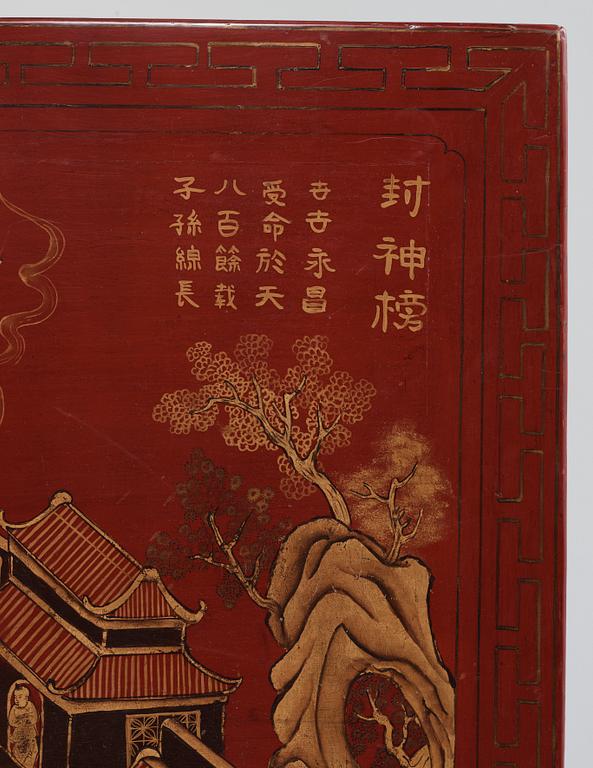 封神榜
世世永昌
受命於天
八百餘載
子孫綿長